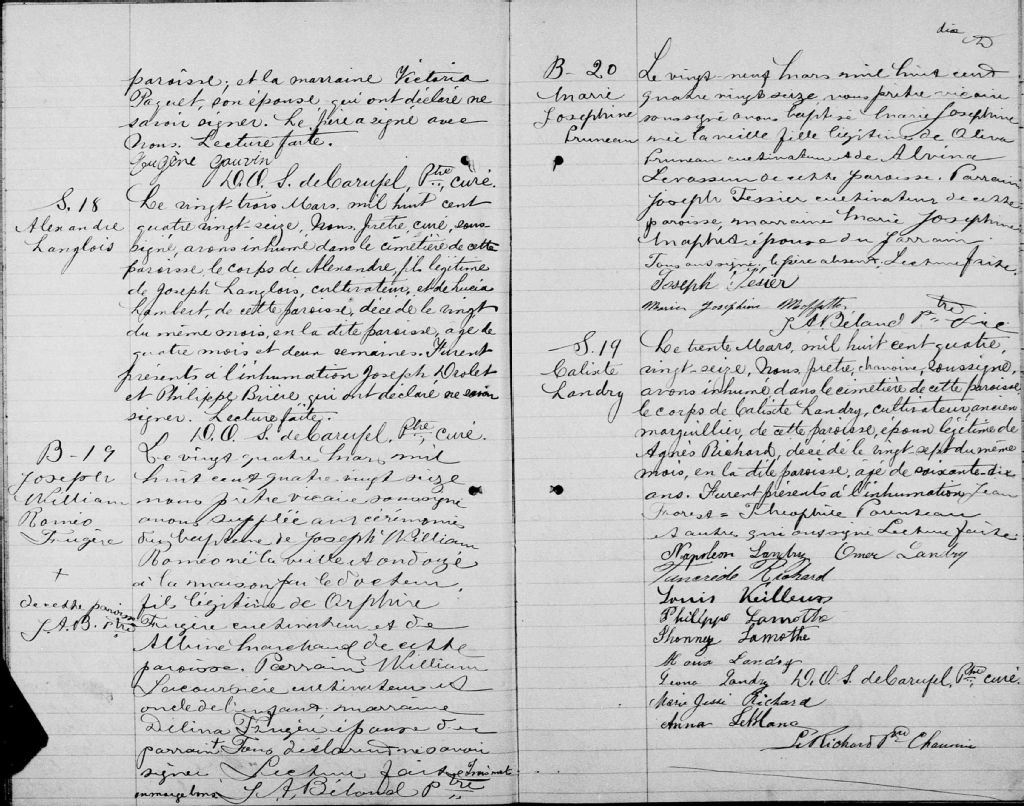 paroisse; et la marraine Victoria
Paquet, son épouse, qui ont déclaré ne
savoir signer. Le père a signé avec
Nous. Lecture faite.
Eugène Gauvin
D. O. S. de Carufel, Ptre, curé.
S. 18
Alexandre
Langlois
Le vingt-trois Mars, mil huit cent
quatre vingt-seize, Nous, prêtre, curé, sous-
signé, avons inhumé dans le cimetière de cette
paroisse, le corps de Alexandre, fils légitime
de Joseph Langlois, cultivateur, et de Lucia
Lambert, de cette paroisse, décédé le vingt
du même mois, en la dite paroisse, agé de
quatre mois et deux semaines. Furent
présents à l'inhumation Joseph Drolet
et Philippe Brière qui ont déclaré ne savoir
signer. Lecture faite.
D. O. S. de Carufel, Ptre, curé.
B-19
Joseph
William
Roméo
Frugère
+
de cette paroisse
J. A. B. Ptre
Le vingt quatre Mars mil
huit cent quatre vingt seize
nous prêtre vicaire soussigné
avons supplée aux cérémonies
du baptême de Joseph William
Roméo né la veille et ondoyé
à la maison par le docteur,
fils légitime de Orphire
Frugère cultivateur et de
Albiné Marchand de cette
paroisse. Parrain William
cultivateur et
oncle de l'enfant marraine
Délina Frugère épouse du
parrain. Tous déclarent ne savoir
signer Lecture faite Trois mots
en marge bons J. A. Béland Ptre
dix
B-20
Marie
Josephine
Bruneau
Le vingt-neuf Mars mil huit cent
quatre vingt seize, nous prêtre vicaire
soussigné avons baptisé Marie Josephine
née la veille fille légitime de Oliva
Bruneau cultivateur et de Alvina
Levasseur de cette paroisse. Parrain
Joseph Tessier cultivateur de cette
paroisse, marraine Marie Josephine
épouse du parrain.
Tous ont signé, le père absent. Lecture faite.
Joseph Tesier
Marie Josephine
J. A. Béland Ptre Vic
S. 19
Calixte
Landry
Le trente Mars, mil huit cent quatre,
vingt-seize, Nous, prêtre, chanoine, soussigné,
avons inhumé dans le cimetière de cette paroisse
le corps de Calixte Landry, cultivateur, ancien
marguillier, de cette paroisse, époux légitime de
Agnès Richard, décédé le vingt-sept du même
mois, en la dite paroisse, agé de soixante-dix
ans. Furent présents à l'inhumation Jean
Forest = Théophile Parenteau
et autres qui ont signé Lecture faite
Napoleon Landry Omer Landry
Richard
Louis Veilleux
Philippe Lamothe
Lamothe
Landry
Landry D. O. S. de Carufel, Ptre, curé.
Marie Josie Richard
Anna LeBlanc
Richard Ptre Chanoine